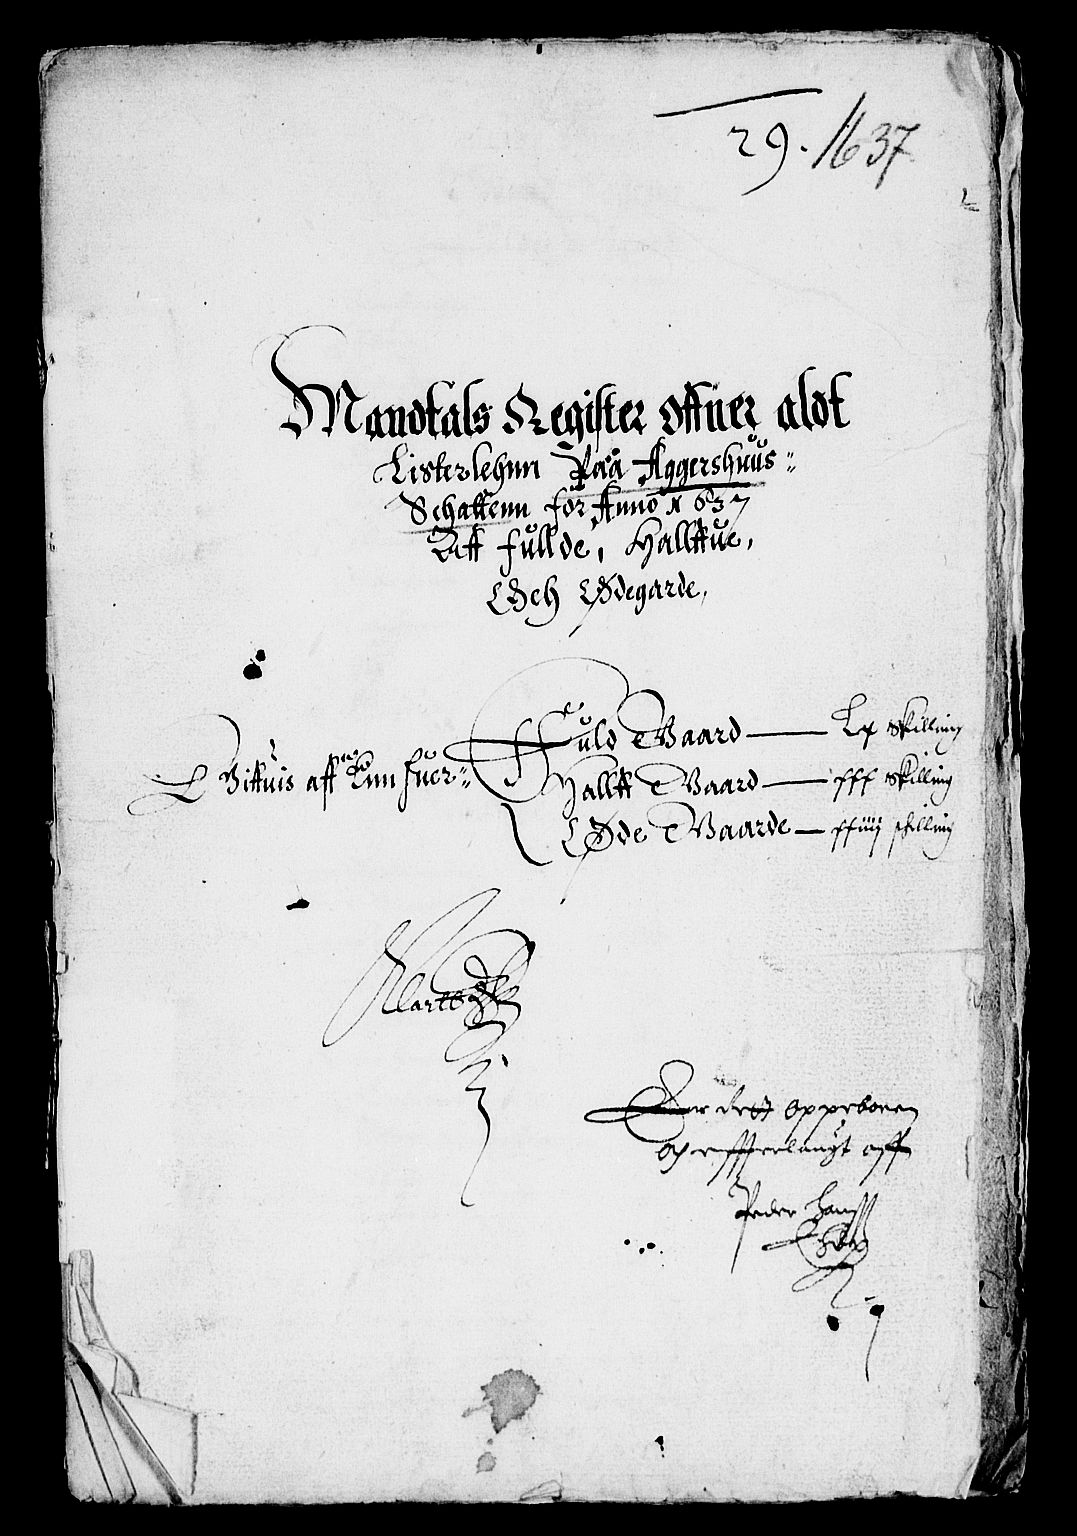 29. 1637
Mandtals Register offuer aldt
Listerlehnn Paa Aggershuus
Schattenn for Anno 1637
Aff fullde, Hallffue,
Och Ødegarde,
Huld Gaard — Lx Skilling
Hallff Gaard — xxx Skilling
Øde Gaarde — xxiiij schilling
Er dett oppeboren
aff
Peder Hanss